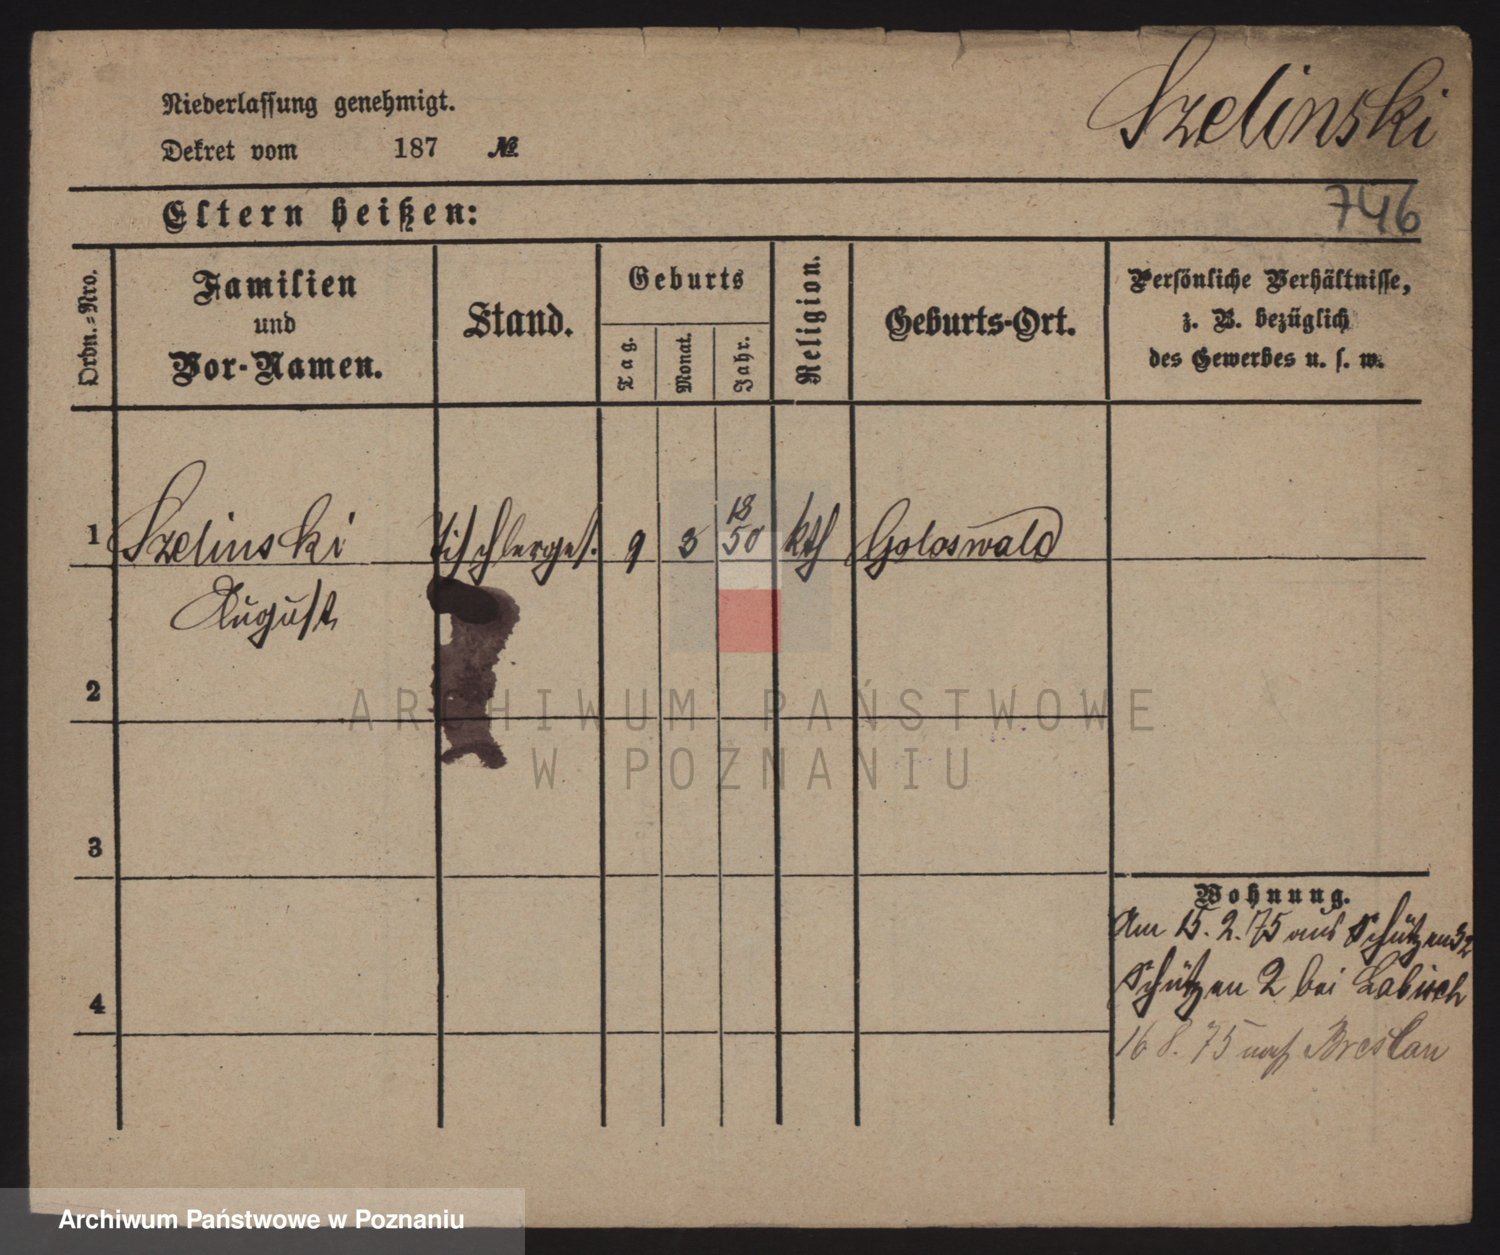 Niederlassung genehmigt.
Szelinski
Dekret vom 187 №
746
Eltern heißen:
Ordn.-Nro.
Familien
und
Vor-Namen.
Stand.
Geburts
Tag.
Monat.
Jahr.
Religion.
Geburts-Ort.
Persönliche Verhältnisse,
z. B. bezüglich
des Gewerbes u. s. w.
18
1 Szelinski Tischlerges. 9 3 50 kth Goloswald
August
2
ARCHIWUM PAŃSTWOWE
W POZNANIU
3
Wohnung.
Am 15. 2. 75 aus Schützen 32
Schützen 2 bei Labisch
4
16 8. 75 nach Breslau
Archiwum Państwowe w Poznaniu